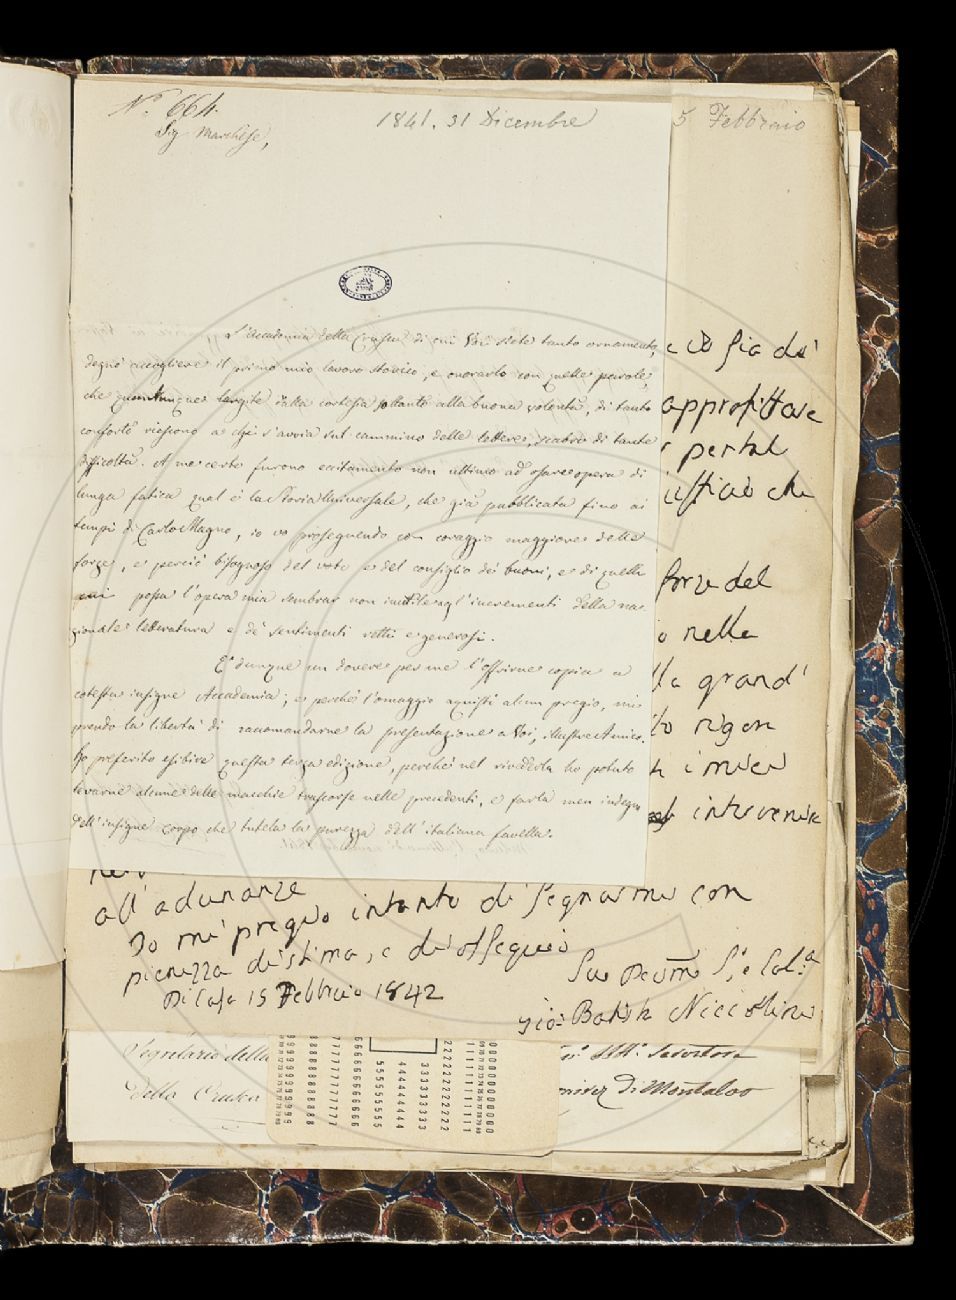 N.° 664.
1841. 31 Dicembre
5 Febbraio
Sig Marchese,
L'Accademia della Crusca di cui Voi siete tanto ornamento,
degnò accogliere il primo mio lavoro storico, e onorarlo con quelle parole,
che quantunque largite dalla cortesia soltanto alla buona volontà, di tanto
conforto riescono a chi s'avvia sul cammino delle lettere, scabro di tante
difficoltà. A me certo furono eccitamento non ultimo ad osare opera di
lunga fatica qual è la Storia Universale, che già pubblicata fino ai
tempi di Carlo Magno, io vo proseguendo con coraggio maggiore delle
forze, e perciò bisognoso del voto e del consiglio de' buoni, e di quelli
cui possa l'opera mia sembrar non inutile agl'incrementi della na-
zionale letteratura e de' sentimenti retti e generosi.
E' dunque un dovere per me l'offrirne copia a
cotesta insigne Accademia; e perchè l'omaggio acquisti alcun pregio, mi
prendo la libertà di raccomandarne la presentazione a Voi, illustre Amico.
Ho preferito esibire questa terza edizione, perchè nel rivederla ho potuto
levarne alcune delle macchie trascorse nelle precedenti, e farla men indegna
dell'insigne corpo che tutela la purezza dell'italiana favella.
sia di
approfittare
per tal
che
forze del
nella
grand'
rigor
i miei
intervenire
all'adunanze
Io mi pregio intanto di segnarmi con
pienezza di stima, e di ossequio
Di Casa 15 Febbraio 1842
Gio: Batista Niccolini
Segretario della
Della Crusca
Di Montalvo